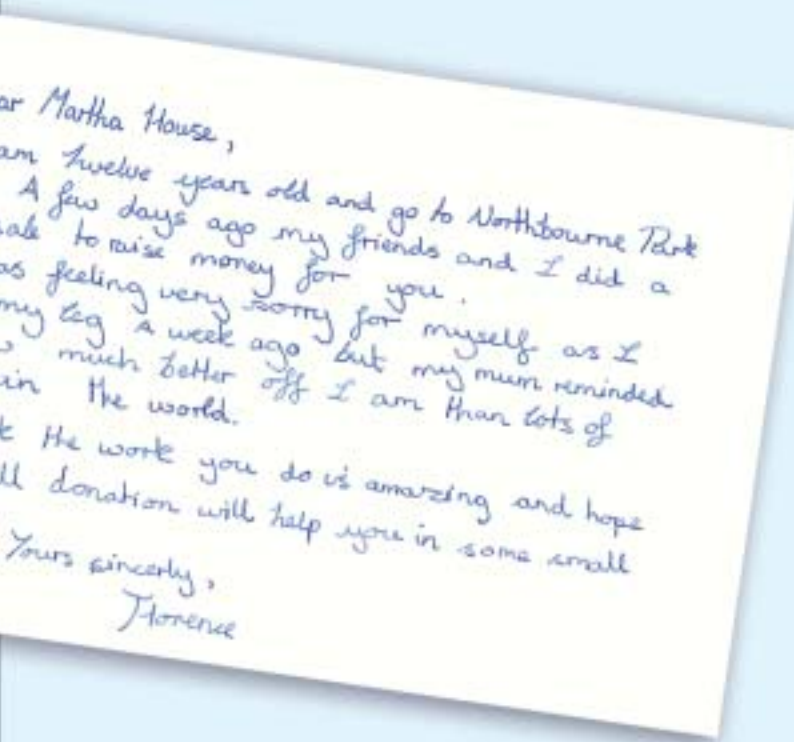 ar Martha House,
am twelve years old and go to Northbourne Park
A few days ago my friends and I did a
ale to raise money for you.
as feeling very sorry for myself as I
my leg A week ago but my mum reminded
much better off I am than lots of
in the world.
the work you do is amazing and hope
ll donation will help you in some small
Yours sincerly,
Florence